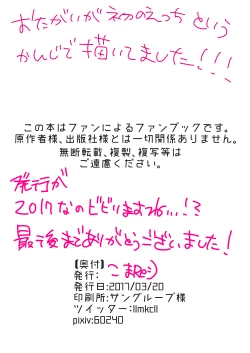 おたがいが初のえっち という
かんじで描いてました!!!
この本はファンによるファンブックです。
原作者様、出版社様とは一切関係ありません。
無断転載、複製、複写等は
ご遠慮ください。
発行が
2017なのビビいますね…!?
最後までありがとうございました!
【奥付】
発行:こまRe:)
発行日:2017/03/20
印刷所:サングループ様
ツイッター:llmkcll
pixiv:60240